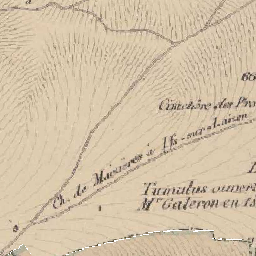 66
Cimetière des Pro
Ch. de Maizières à Ifs-sur-Laison
Tumulus ouvert
Mr Galeron en 18